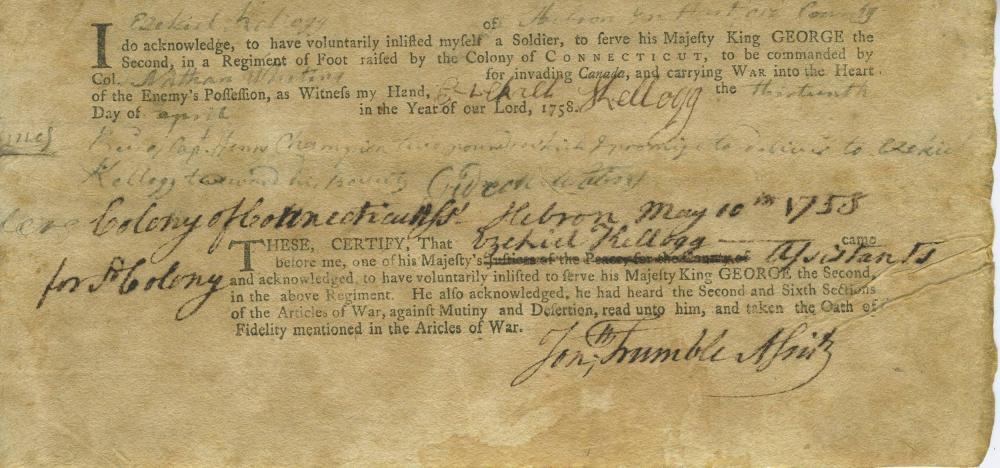 I Ezekiel Kellogg of Hebron in Hartford County
do acknowledge, to have voluntarily inlisted myself a Soldier, to serve his Majesty King GEORGE the
Second, in a Regiment of Foot raised by the Colony of CONNECTICUT, to be commanded by
Col. Nathan Whiting for invading Canada, and carrying WAR into the Heart
of the Enemy's Possession, as Witness my Hand, Ezekiel Kellogg the thirteenth
Day of april in the Year of our Lord, 1758.
Capt Henry Champion two pounds which I promise to deliver to Ezekiel
Kellogg toward his bounty Gideon
Colony of Connecticut Ss. Hebron May 10th 1758
THESE, CERTIFY, That Ezekiel Kellogg came
before me, one of his Majesty's Justices of the Peace, for the County of Assistants
for sd Colony and acknowledged, to have voluntarily inlisted to serve his Majesty King GEORGE the Second,
in the above Regiment. He also acknowledged, he had heard the Second and Sixth Sections
of the Articles of War, against Mutiny and Desertion, read unto him, and taken the Oath of
Fidelity mentioned in the Aricles of War.
Jonth; Trumble Assist